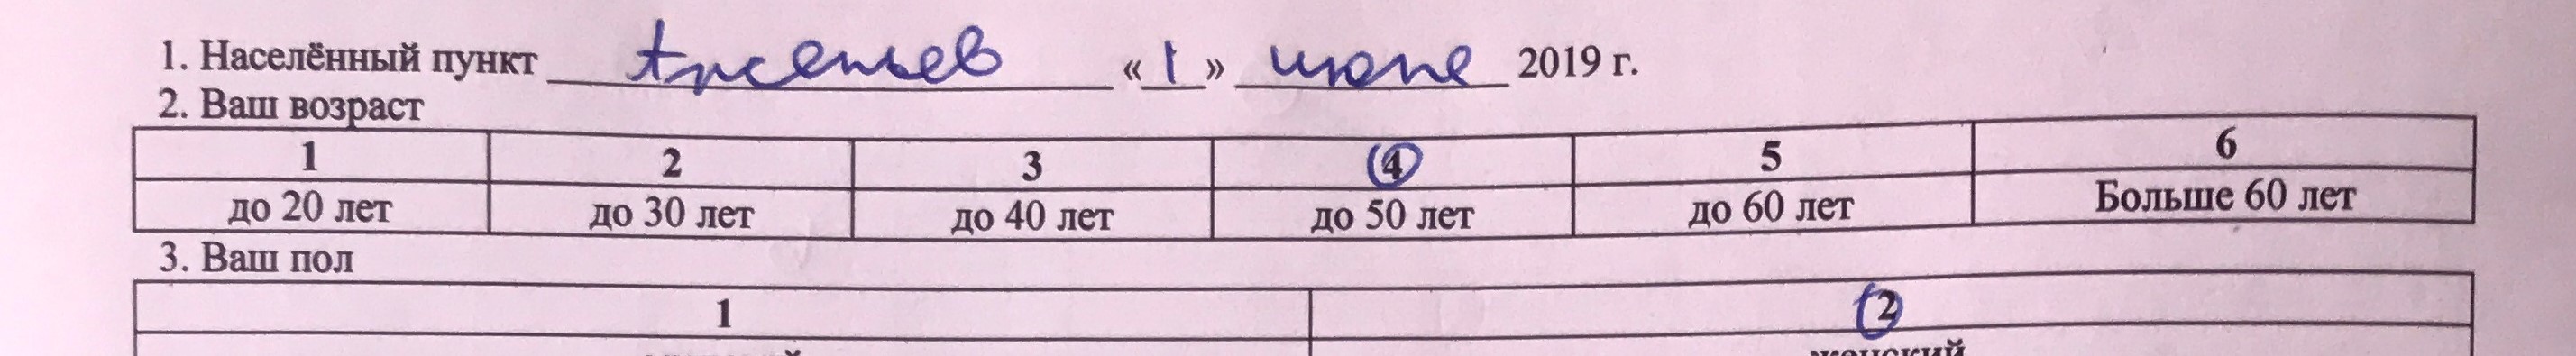 1. Населённый пункт Арсеньев «1» июне 2019 г.
2. Ваш возраст
1 2 3 4 5 6
до 20 лет до 30 лет до 40 лет до 50 лет до 60 лет Больше 60 лет
3. Ваш пол
1 2
женский